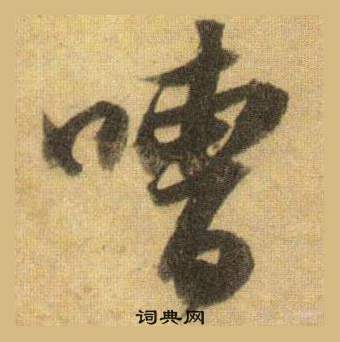 嘈
词典网